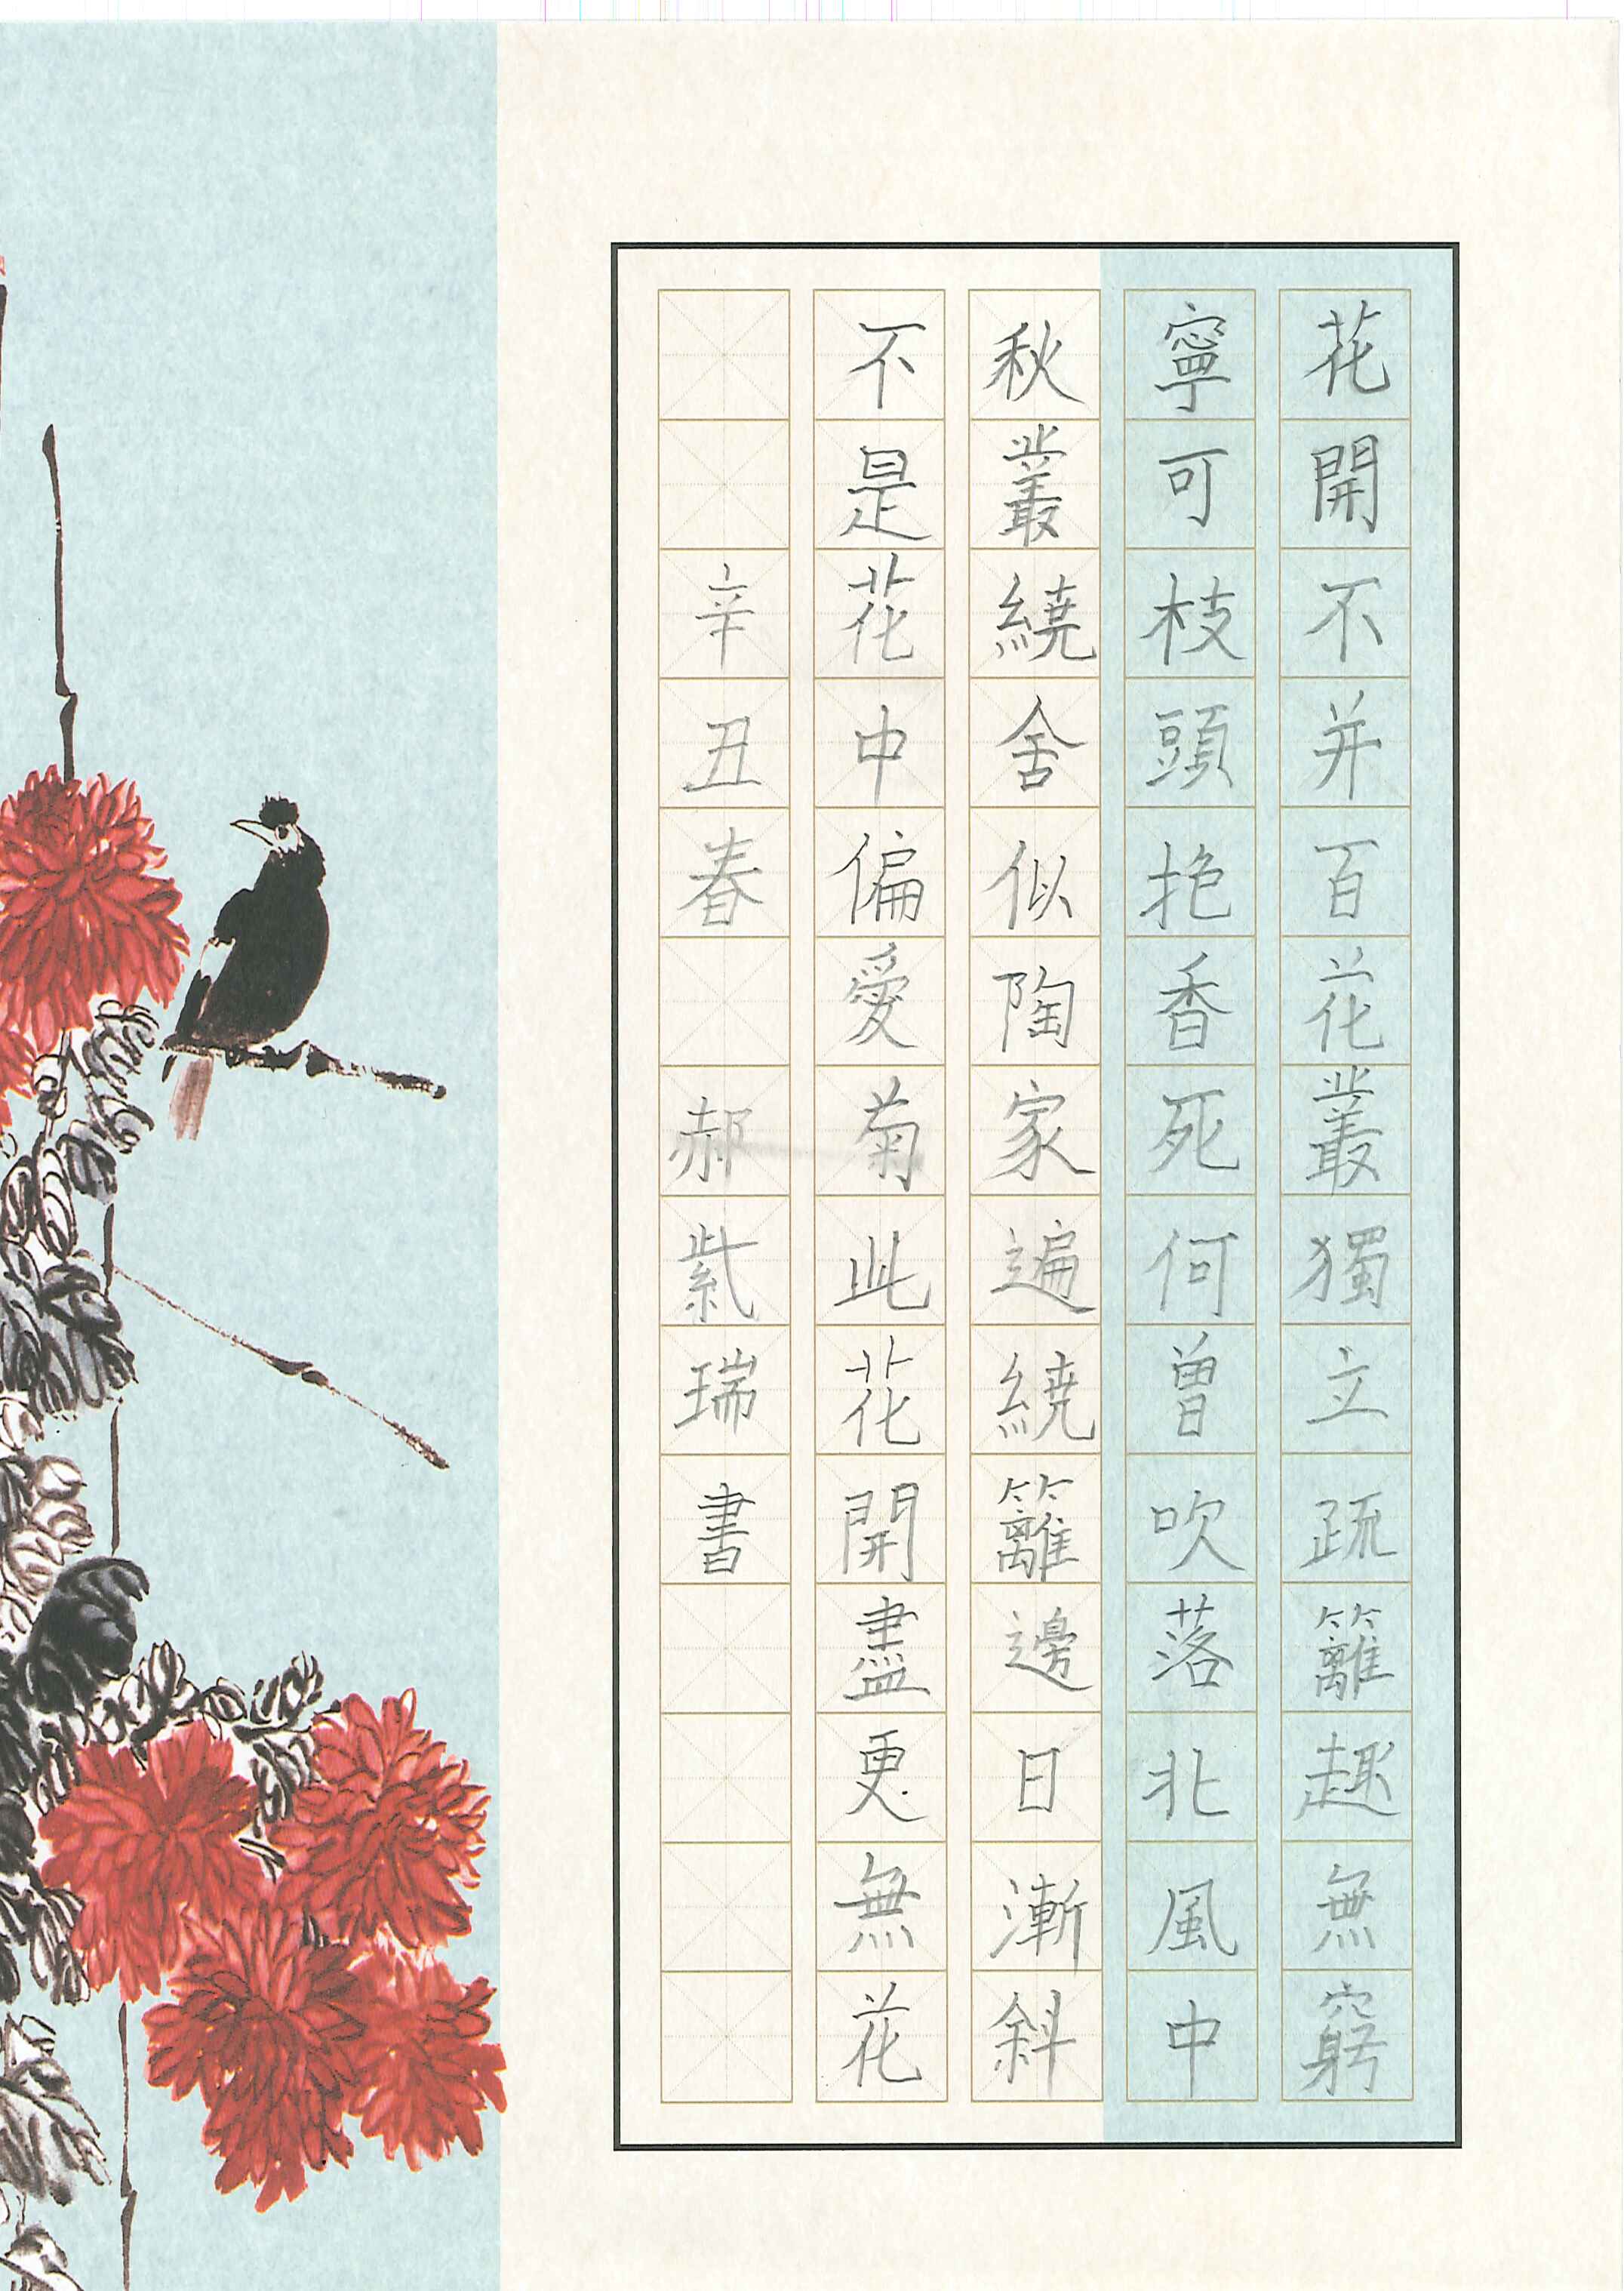 花開不并百花叢獨立疏籬趣無窮
寧可枝頭抱香死何曾吹落北風中
秋叢繞舍似陶家遍繞籬邊日漸斜
不是花中偏愛菊此花開盡更無花
辛丑春 郝紫瑞書